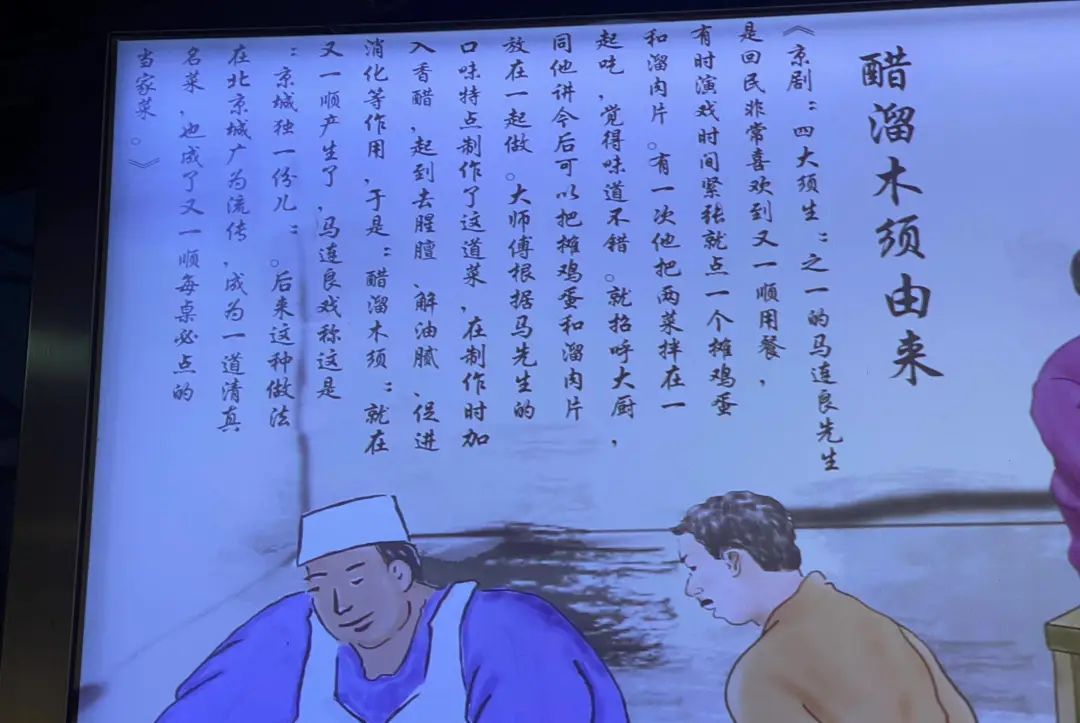 醋溜木须由来
《京剧：四大须生：之一的马连良先生
是回民非常喜欢到又一顺用餐，
有时演戏时间紧张就点一个摊鸡蛋
和溜肉片。有一次他把两菜拌在一
起吃，觉得味道不错。就招呼大厨，
同他讲今后可以把摊鸡蛋和溜肉片
放在一起做。大师傅根据马先生的
口味特点制作了这道菜，在制作时加
入香醋，起到去腥膻、解油腻、促进
消化等作用，于是：醋溜木须：就在
又一顺产生了，马连良戏称这是
：京城独一份儿：。后来这种做法
在北京城广为流传，成为一道清真
名菜，也成了又一顺每桌必点的
当家菜。》